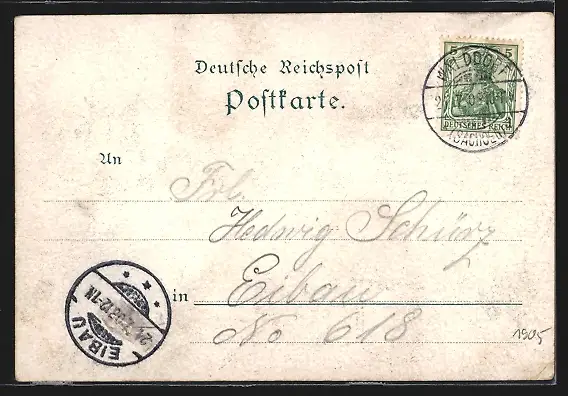 5 5
DEUTSCHES REICH
Deutsche Reichspost
Postkarte.
An
Frl.
Hedwig Schürz
in Eibau
No 618
EIBAU
1905